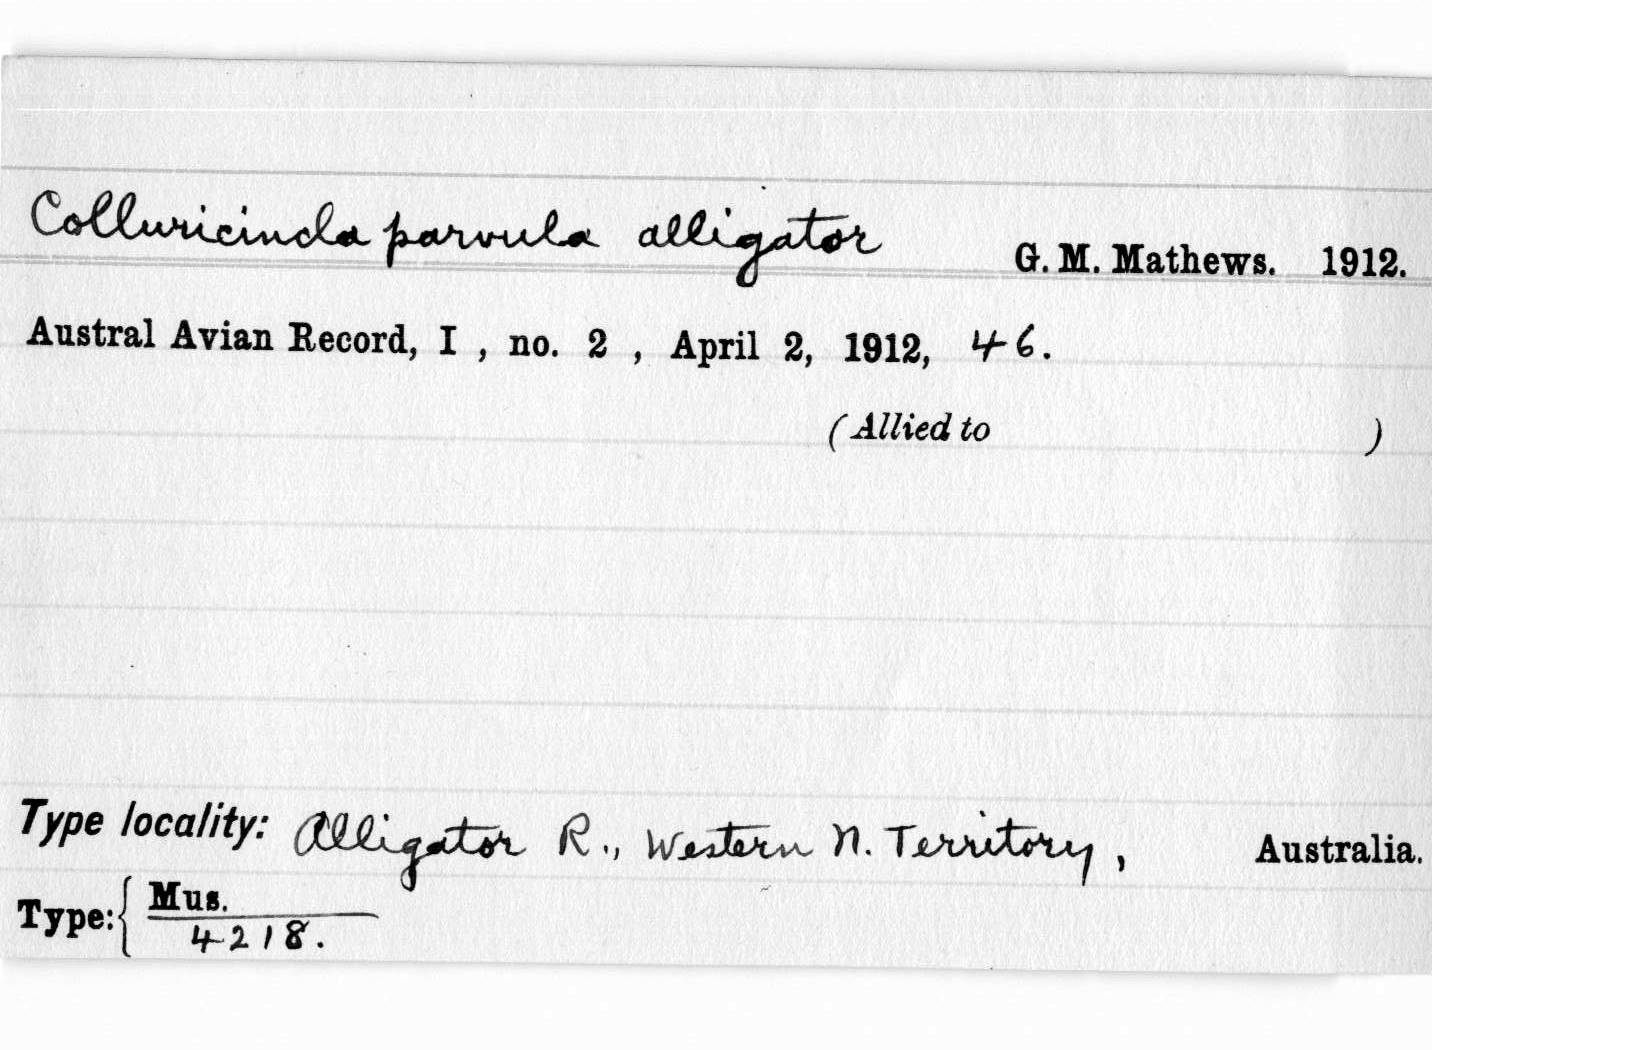 Colluricincla parvula alligator G. M. Mathews. 1912.
Austral Avian Record, I , no. 2 , April 2, 1912, 46.
(Allied to )
Type locality: Alligator R., Western N. Territory, Australia.
Type: { Mus.
4218.